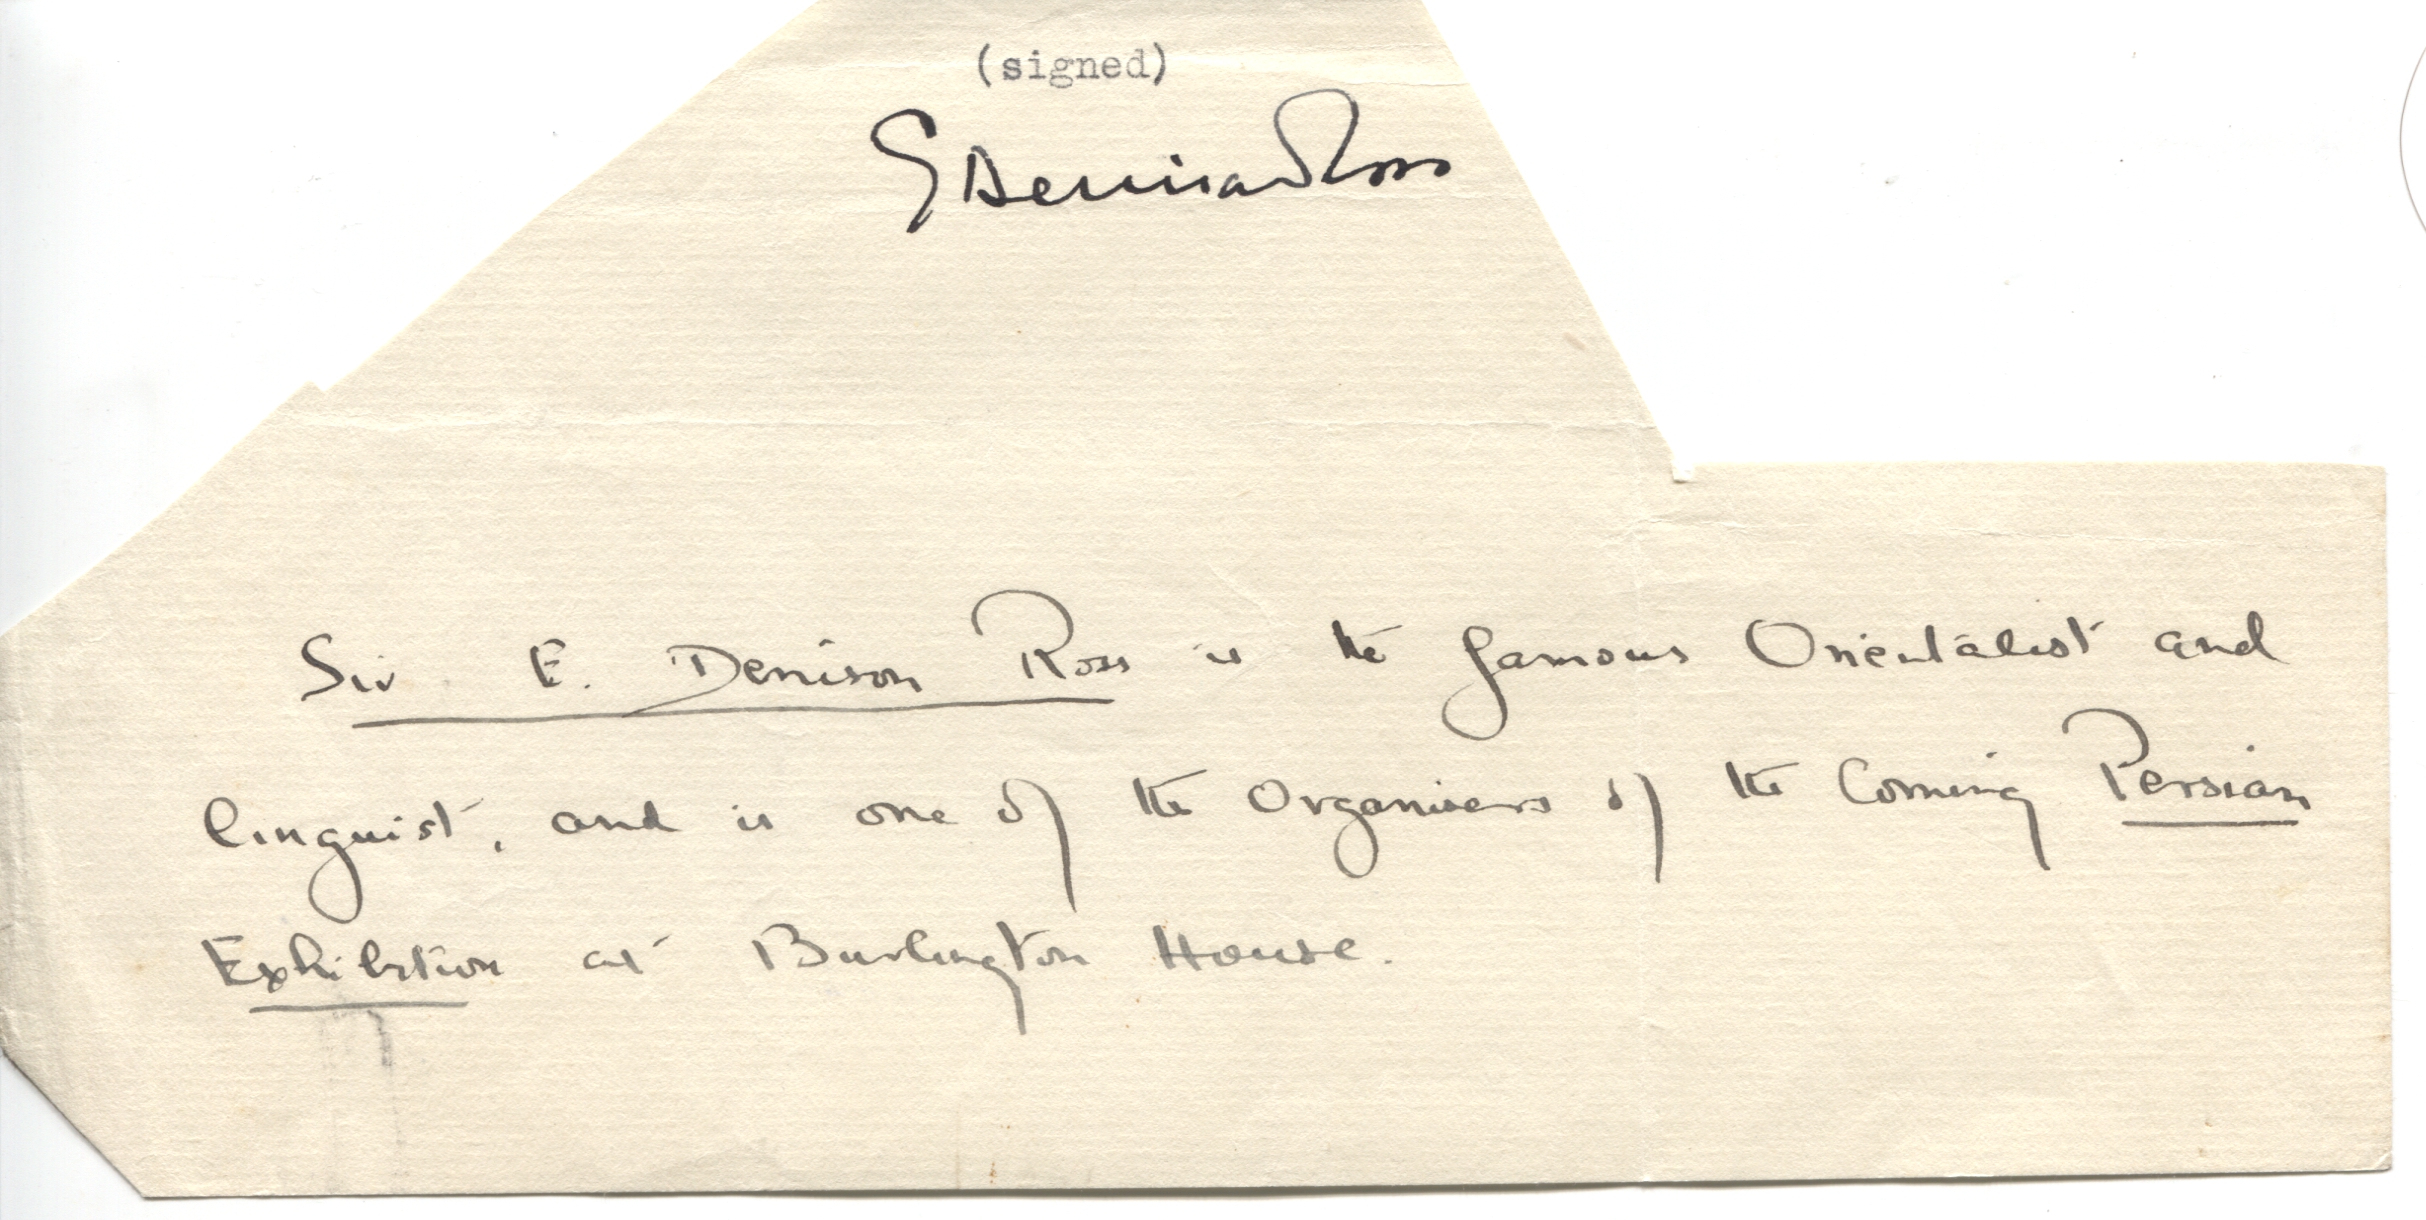 (signed)
E Denison Ross
Sir E. Denison Ross is the famous Orientalist and
linguist, and is one of the Organisers of the Coming Persian
Exhibition at Burlington House.